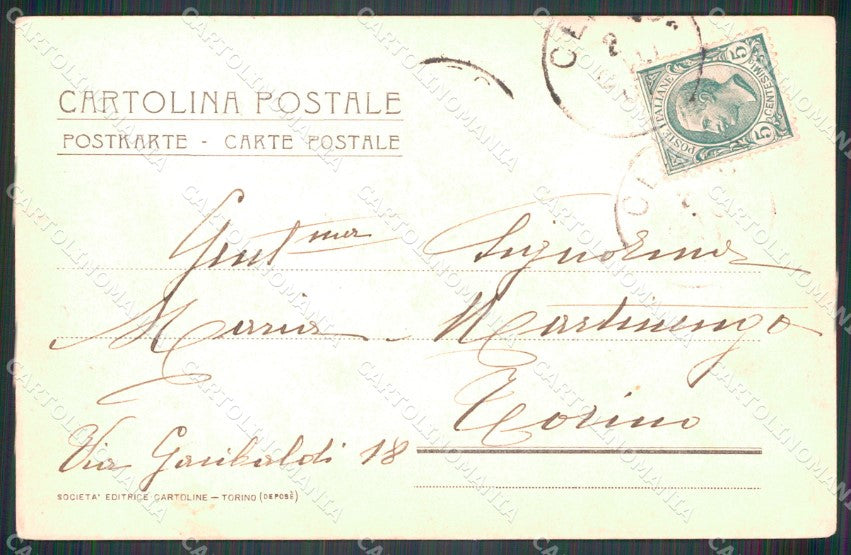 CARTOLINA POSTALE
POSTKARTE - CARTE POSTALE
POSTE ITALIANE
CENTESIMI
5 5
Gent.ma Signorina
Maria Martinengo
Torino
Via Garibaldi 18
SOCIETA' EDITRICE CARTOLINE — TORINO (DEPOSÈ)
CARTOLINOMANIA